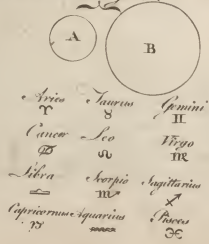 A B
Aries Taurus Gemini
♈ ♉ ♊
Cancer Leo Virgo
♋ ♌ ♍
Libra Scorpio Sagittarius
♎ ♏ ♐
Capricornus Aquarius Pisces
♑ ♒ ♓